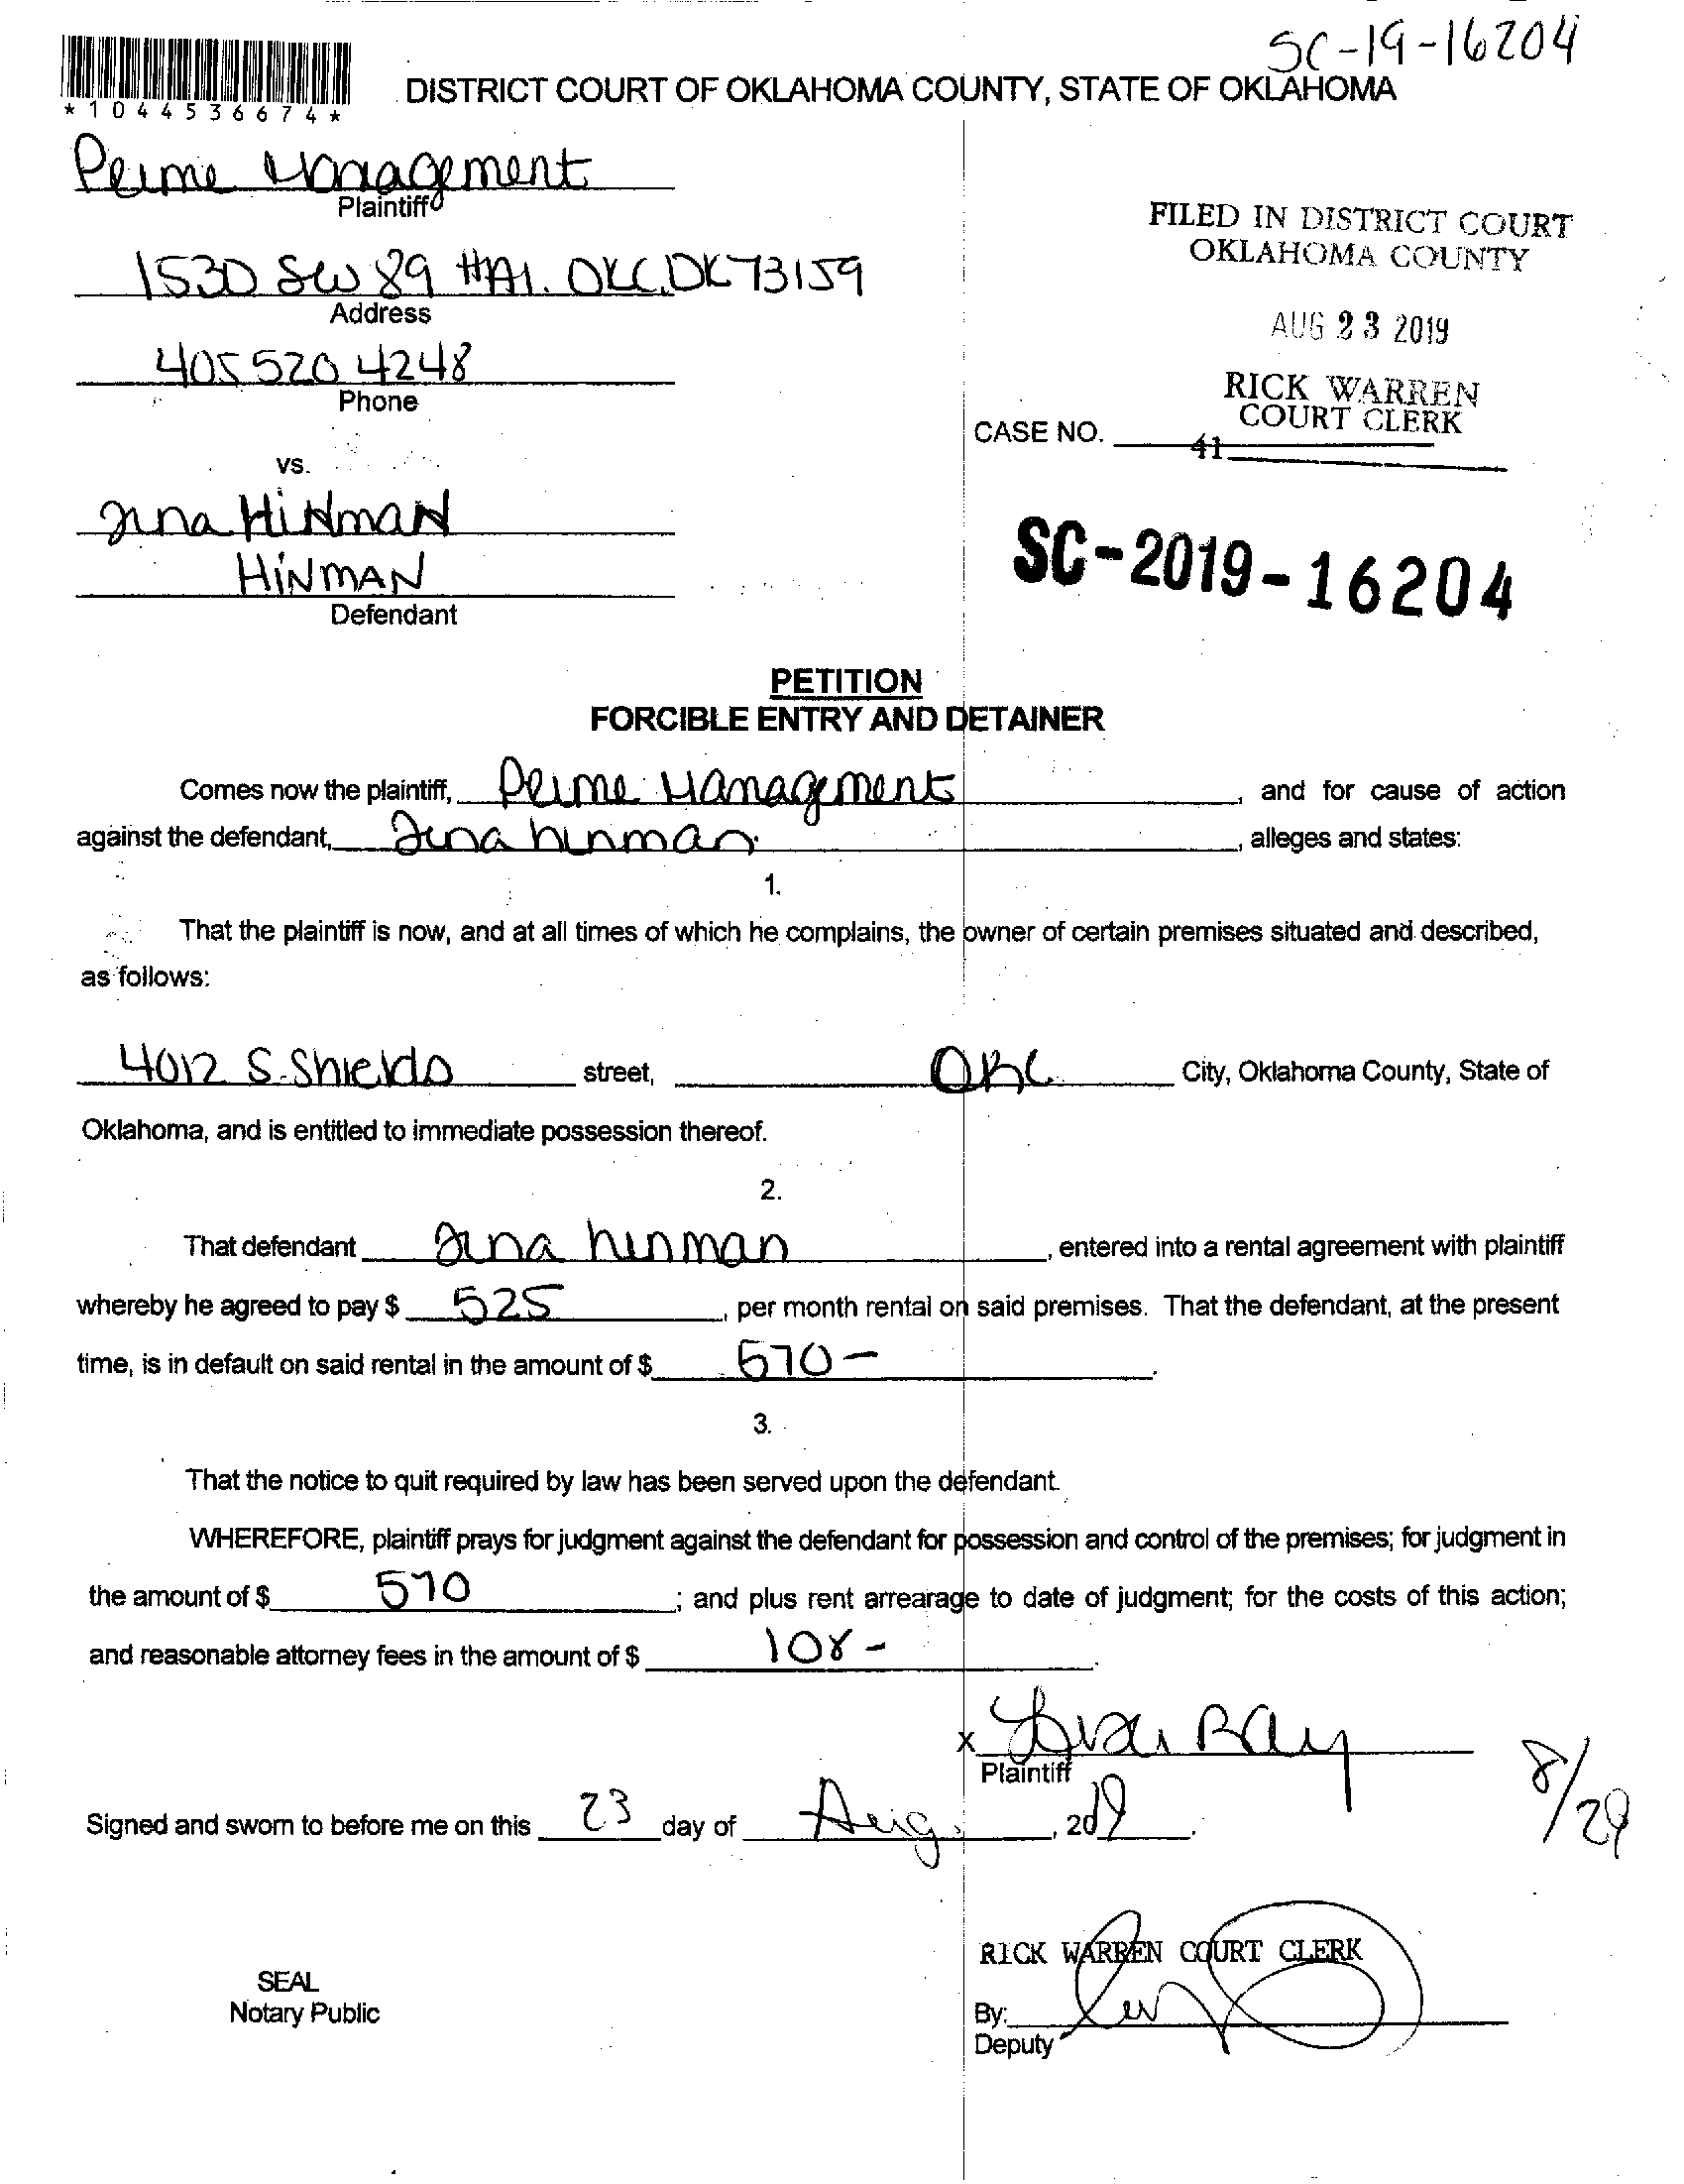 SC-19-16204
*1044536674*
DISTRICT COURT OF OKLAHOMA COUNTY, STATE OF OKLAHOMA
Prime Management
Plaintiff
1530 SW 89 #A1. OKC, OK 73159
Address
405 520 4248
Phone
vs.
Hinman
HINMAN
Defendant
FILED IN DISTRICT COURT
OKLAHOMA COUNTY
AUG 23 2019
RICK WARREN
COURT CLERK
CASE NO.
41
SC-2019-16204
PETITION
FORCIBLE ENTRY AND DETAINER
Comes now the plaintiff, Prime Management, and for cause of action
against the defendant, hinman, alleges and states:
1.
That the plaintiff is now, and at all times of which he complains, the owner of certain premises situated and described,
as follows:
4012 S. Shields street, OKC City, Oklahoma County, State of
Oklahoma, and is entitled to immediate possession thereof.
2.
That defendant hinman, entered into a rental agreement with plaintiff
whereby he agreed to pay $ 525, per month rental on said premises. That the defendant, at the present
time, is in default on said rental in the amount of $ 570-.
3.
That the notice to quit required by law has been served upon the defendant.
WHEREFORE, plaintiff prays for judgment against the defendant for possession and control of the premises; for judgment in
the amount of $ 570; and plus rent arrearage to date of judgment; for the costs of this action;
and reasonable attorney fees in the amount of $ 108-.
x Ray
Plaintiff
8/29
Signed and sworn to before me on this 23 day of Aug., 2019.
RICK WARREN COURT CLERK
SEAL
Notary Public
By:
Deputy